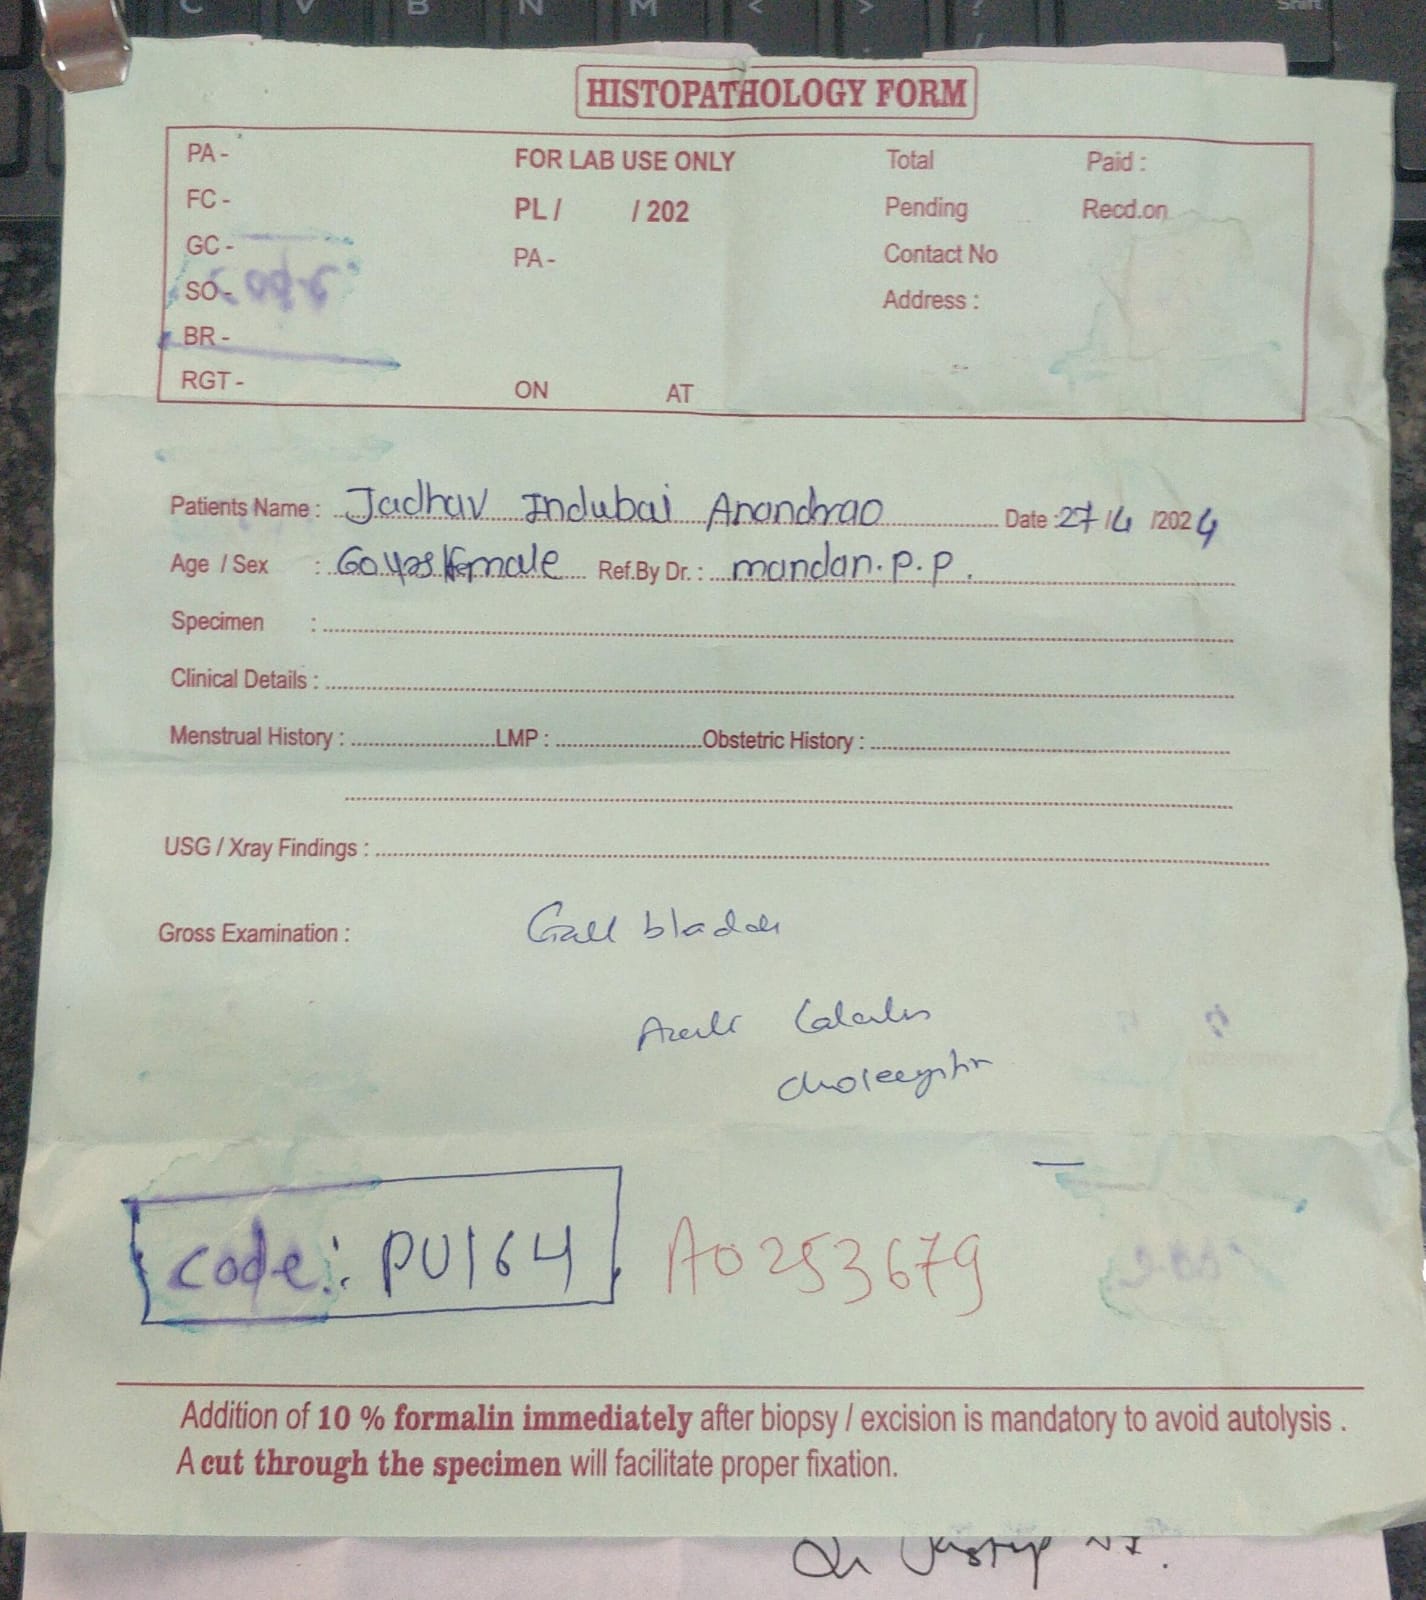 HISTOPATHOLOGY FORM
PA -
FC -
GC -
SO -
BR -
RGT -
FOR LAB USE ONLY
PL / / 202
PA -
ON AT
Total Paid :
Pending Recd.on
Contact No
Address :
Patients Name : Jadhav Indubai Anandrao Date : 27/4 /2024
Age / Sex : 60 yrs/female Ref.By Dr. : mandan. P. P.
Specimen :
Clinical Details :
Menstrual History : LMP : Obstetric History :
USG / Xray Findings :
Gross Examination : Gall bladder
Acute Calculus
cholecystitis
code : PU164 A0253679
Addition of 10 % formalin immediately after biopsy / excision is mandatory to avoid autolysis .
A cut through the specimen will facilitate proper fixation.